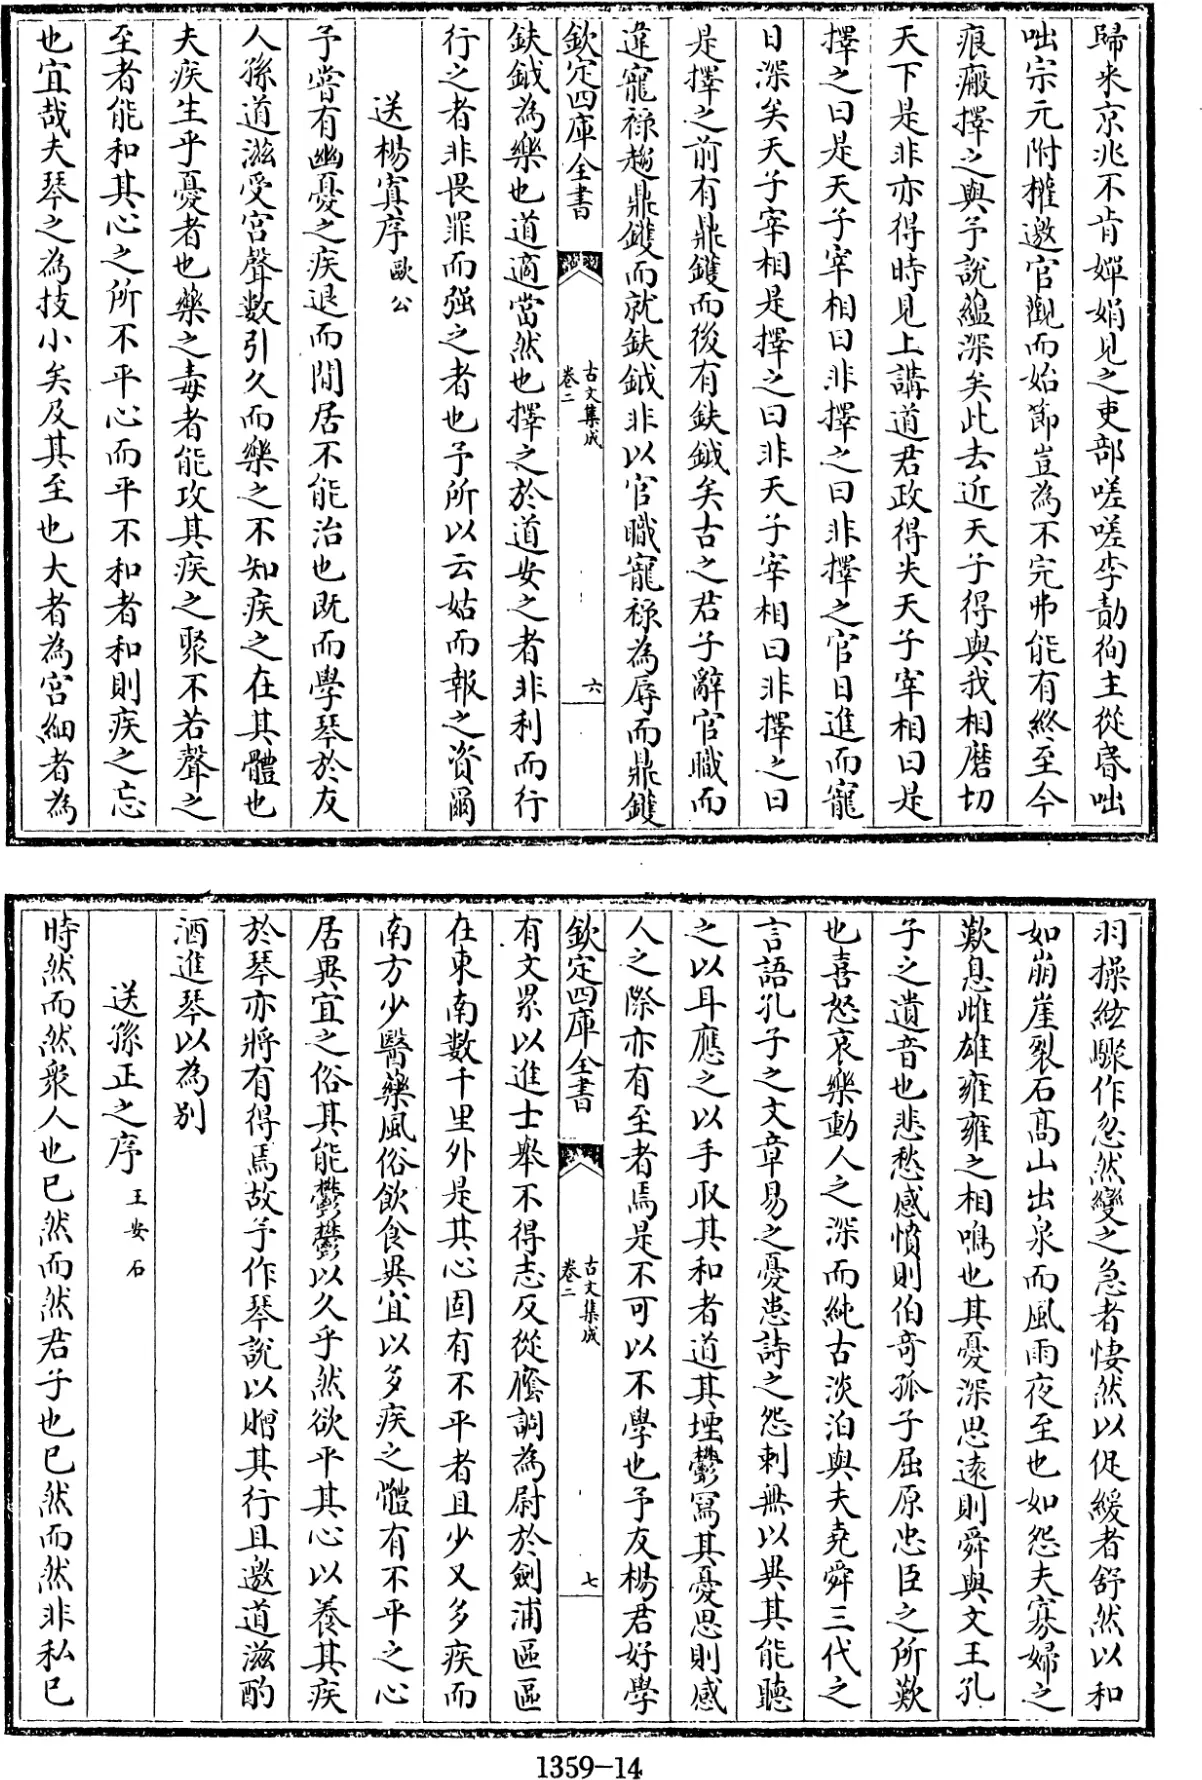 歸來京兆不肯嬋娟見之吏部嗟嗟李勣徇主從昏咄
咄宗元附權邀官觀而始節豈為不完弗能有終至今
痕瘢擇之與予說蘊深矣此去近天子得與我相磨切
天下是非亦得時見上講道君政得失天子宰相曰是
擇之曰是天子宰相曰非擇之曰非擇之官日進而寵
日深矣天子宰相是擇之曰非天子宰相曰非擇之曰
是擇之前有鼎鑊而後有鈇鉞矣古之君子辭官職而
違寵祿趨鼎鑊而就鈇鉞非以官職寵祿為辱而鼎鑊
欽定四庫全書
古文集成
卷二
六
鈇鉞為樂也道適當然也擇之於道安之者非利而行
行之者非畏罪而强之者也予所以云姑而報之資爾
送楊寘序 歐公
予嘗有幽憂之疾退而閒居不能治也既而學琴於友
人孫道滋受宮聲數引久而樂之不知疾之在其體也
夫疾生乎憂者也藥之毒者能攻其疾之聚不若聲之
至者能和其心之所不平心而平不和者和則疾之忘
也宜哉夫琴之為技小矣及其至也大者為宮細者為
羽操絃驟作忽然變之急者悽然以促緩者舒然以和
如崩崖裂石高山出泉而風雨夜至也如怨夫寡婦之
歎息雌雄雍雍之相鳴也其憂深思遠則舜與文王孔
子之遺音也悲愁感憤則伯奇孤子屈原忠臣之所歎
也喜怒哀樂動人之深而純古淡泊與夫堯舜三代之
言語孔子之文章易之憂患詩之怨刺無以異其能聽
之以耳應之以手取其和者道其堙鬱寫其憂思則感
人之際亦有至者焉是不可以不學也予友楊君好學
欽定四庫全書
古文集成
卷二
七
有文累以進士舉不得志反從廕調為尉於劍浦區區
在東南數千里外是其心固有不平者且少又多疾而
南方少醫藥風俗飲食異宜以多疾之體有不平之心
居異宜之俗其能鬱鬱以久乎然欲平其心以養其疾
於琴亦將有得焉故予作琴說以贈其行且邀道滋酌
酒進琴以為別
送孫正之序 王安石
時然而然衆人也已然而然君子也已然而然非私已
1359-14